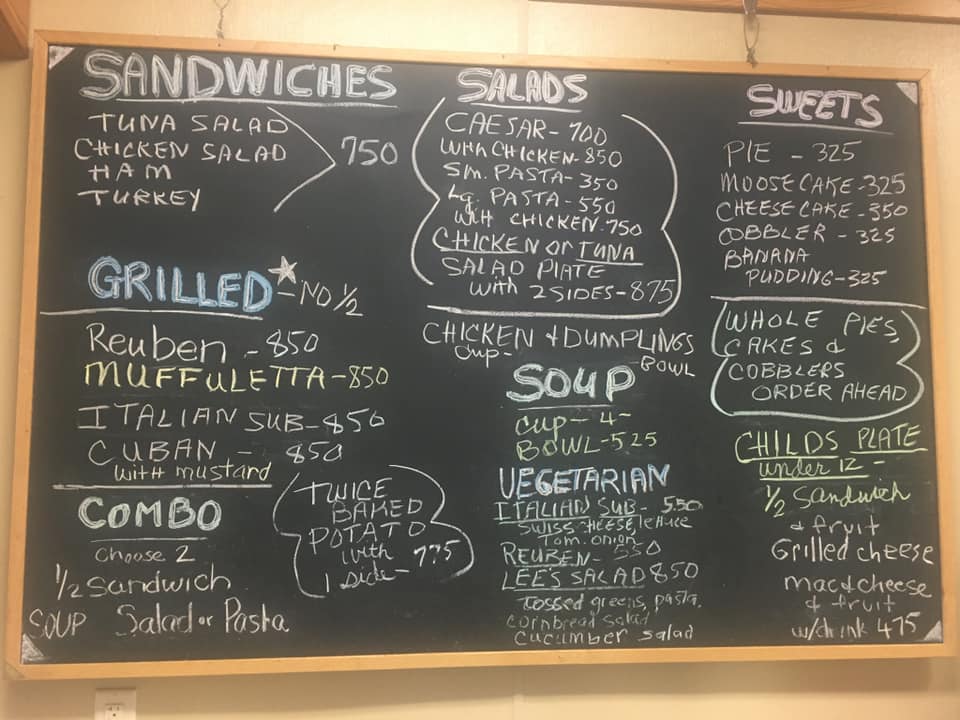 SANDWICHES
TUNA SALAD
CHICKEN SALAD
HAM
TURKEY
750
GRILLED - NO 1/2
Reuben - 850
MUFFULETTA - 850
ITALIAN SUB - 850
CUBAN - 850
with mustard
COMBO
Choose 2
1/2 Sandwich
SOUP Salad or Pasta
TWICE
BAKED
POTATO
with
1 side - 775
SALADS
CAESAR - 700
with CHICKEN - 850
Sm. PASTA - 350
Lg. PASTA - 550
with CHICKEN - 750
CHICKEN or TUNA
SALAD PLATE
with 2 SIDES - 875
CHICKEN & DUMPLINGS
Cup - BOWL
SOUP
Cup - 4-
BOWL - 525
VEGETARIAN
ITALIAN SUB - 550
SWISS CHEESE, lettuce
Tom. onion
REUBEN - 550
LEE'S SALAD 850
tossed greens, pasta,
cornbread salad
cucumber salad
SWEETS
PIE - 325
MOOSE CAKE - 325
CHEESE CAKE - 350
COBBLER - 325
BANANA
PUDDING - 325
WHOLE PIES,
CAKES &
COBBLERS
ORDER AHEAD
CHILDS PLATE
under 12 -
1/2 Sandwich
& fruit
Grilled cheese
mac & cheese
& fruit
w/drink 475